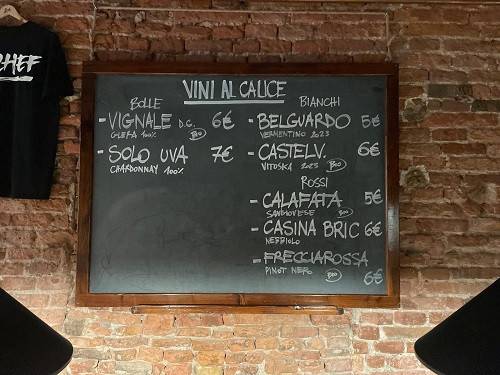 CHEF
VINI AL CALICE
BOLLE
- VIGNALE D.C. 6€
GLERA 100% BIO
- SOLO UVA 7€
CHARDONNAY 100%
BIANCHI
- BELGUARDO 5€
VERMENTINO 2023
- CASTELV. 6€
VITOSKA 2023 BIO
ROSSI
- CALAFATA 5€
SANGIOVESE BIO
- CASINA BRIC 6€
NEBBIOLO
- FRECCIAROSSA
PINOT NERO BIO 6€